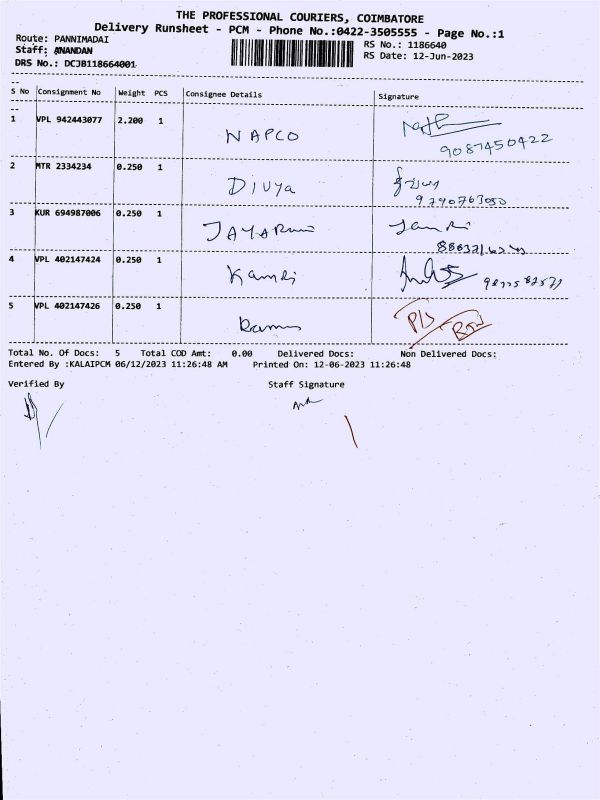 THE PROFESSIONAL COURIERS, COIMBATORE
Delivery Runsheet - PCM - Phone No.:0422-3505555 - Page No.:1
Route: PANNIMADAI
RS No.: 1186640
Staff: ANANDAN
RS Date: 12-Jun-2023
DRS No.: DCJB118664001
S No Consignment No Weight PCS Consignee Details Signature
1 VPL 942443077 2.200 1 NAPCO
9087450422
2 MTR 2334234 0.250 1 DIVYA
9790763050
3 KUR 694987006 0.250 1
4 VPL 402147424 0.250 1
5 VPL 402147426 0.250 1
Total No. Of Docs: 5 Total COD Amt: 0.00 Delivered Docs: Non Delivered Docs:
Entered By :KALAIPCM 06/12/2023 11:26:48 AM Printed On: 12-06-2023 11:26:48
Verified By Staff Signature